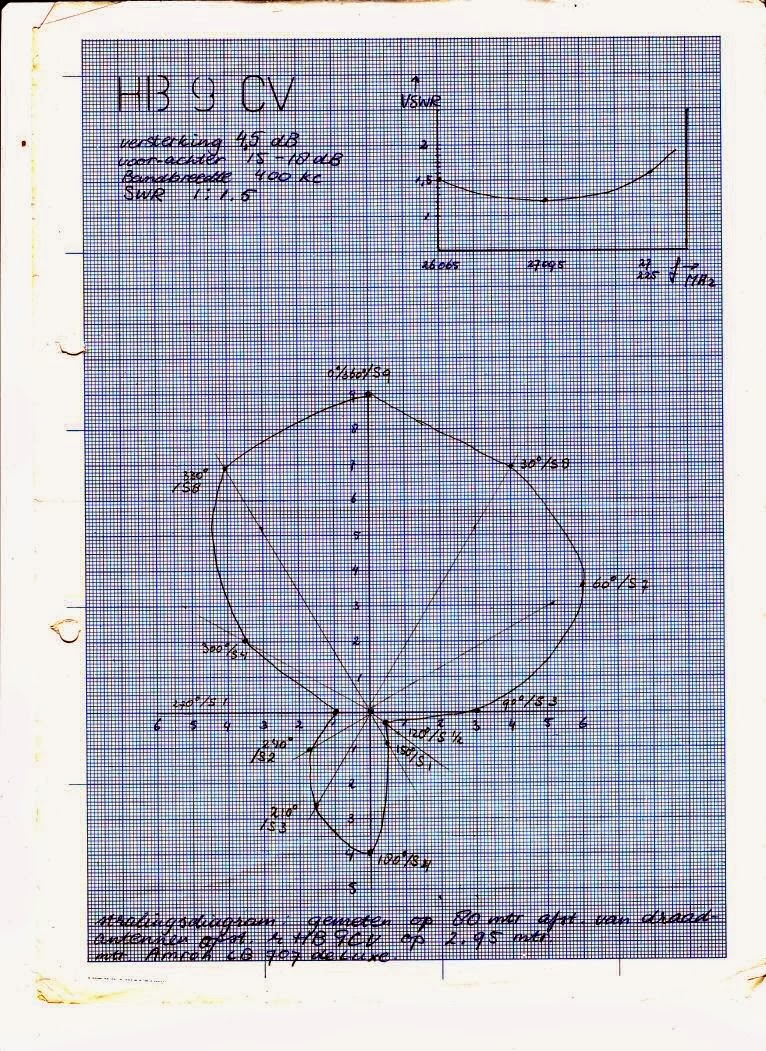 HB 9 CV
versterking 4,5 dB
voor-achter 15-18 dB
Bandbreedte 400 kc
SWR 1:1.5
VSWR
2
1,5
1
26065 27095 27 225 f → MHz
0°/360°/S9
9
8
7
6
5
4
3
2
1
330°
/S8
30°/S8
60°/S7
300°/S4
270°/S1
90°/S3
6 5 4 3 2 1 2 3 4 5 6
120°/S ½
150°/S1
240°
/S2
210°
/S3
180°/S4
1
2
3
4
5
stralingsdiagram: gemeten op 80 mtr afst. van draad-
antennen opst. HB 9CV op 2.95 mtr.
mtr. Amroh CB 707 de Luxe